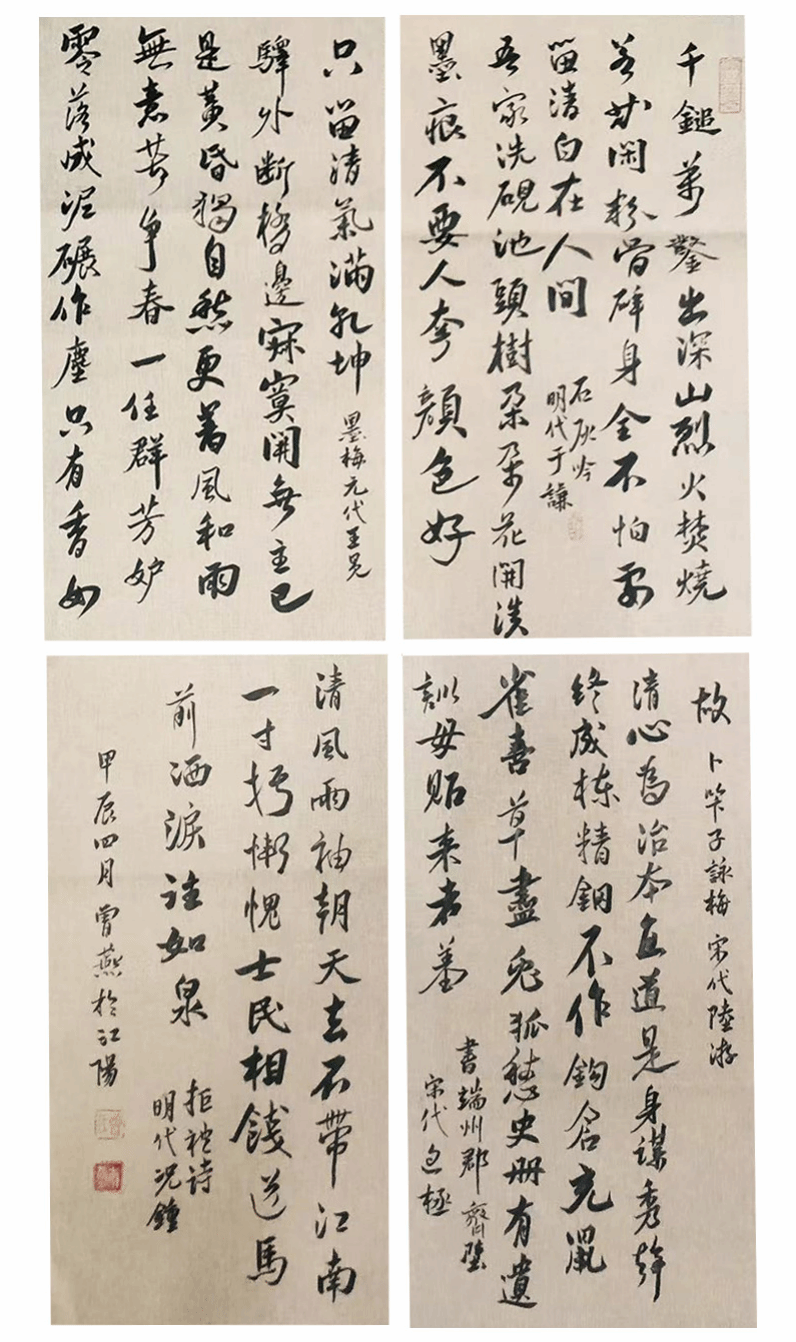 千鎚萬鑿出深山烈火焚燒
若等閑粉骨碎身全不怕要
留清白在人間
石灰吟
明代于謙
吾家洗硯池頭樹朵朵花開淡
墨痕不要人夸顏色好
只留清氣滿乾坤
墨梅元代王冕
驛外斷橋邊寂寞開無主已
是黃昏獨自愁更著風和雨
無意苦爭春一任群芳妒
零落成泥碾作塵只有香如
故 卜算子詠梅 宋代陸游
清心為治本直道是身謀秀幹
終成棟精鋼不作鉤倉充鼠
雀喜草盡兔狐愁史冊有遺
訓毋貽來者羞
書端州郡齋壁
宋代包拯
清風兩袖朝天去不帶江南
一寸棉慚愧士民相餞送馬
前洒淚注如泉
拒禮詩
明代况鍾
甲辰四月曾燕於江陽